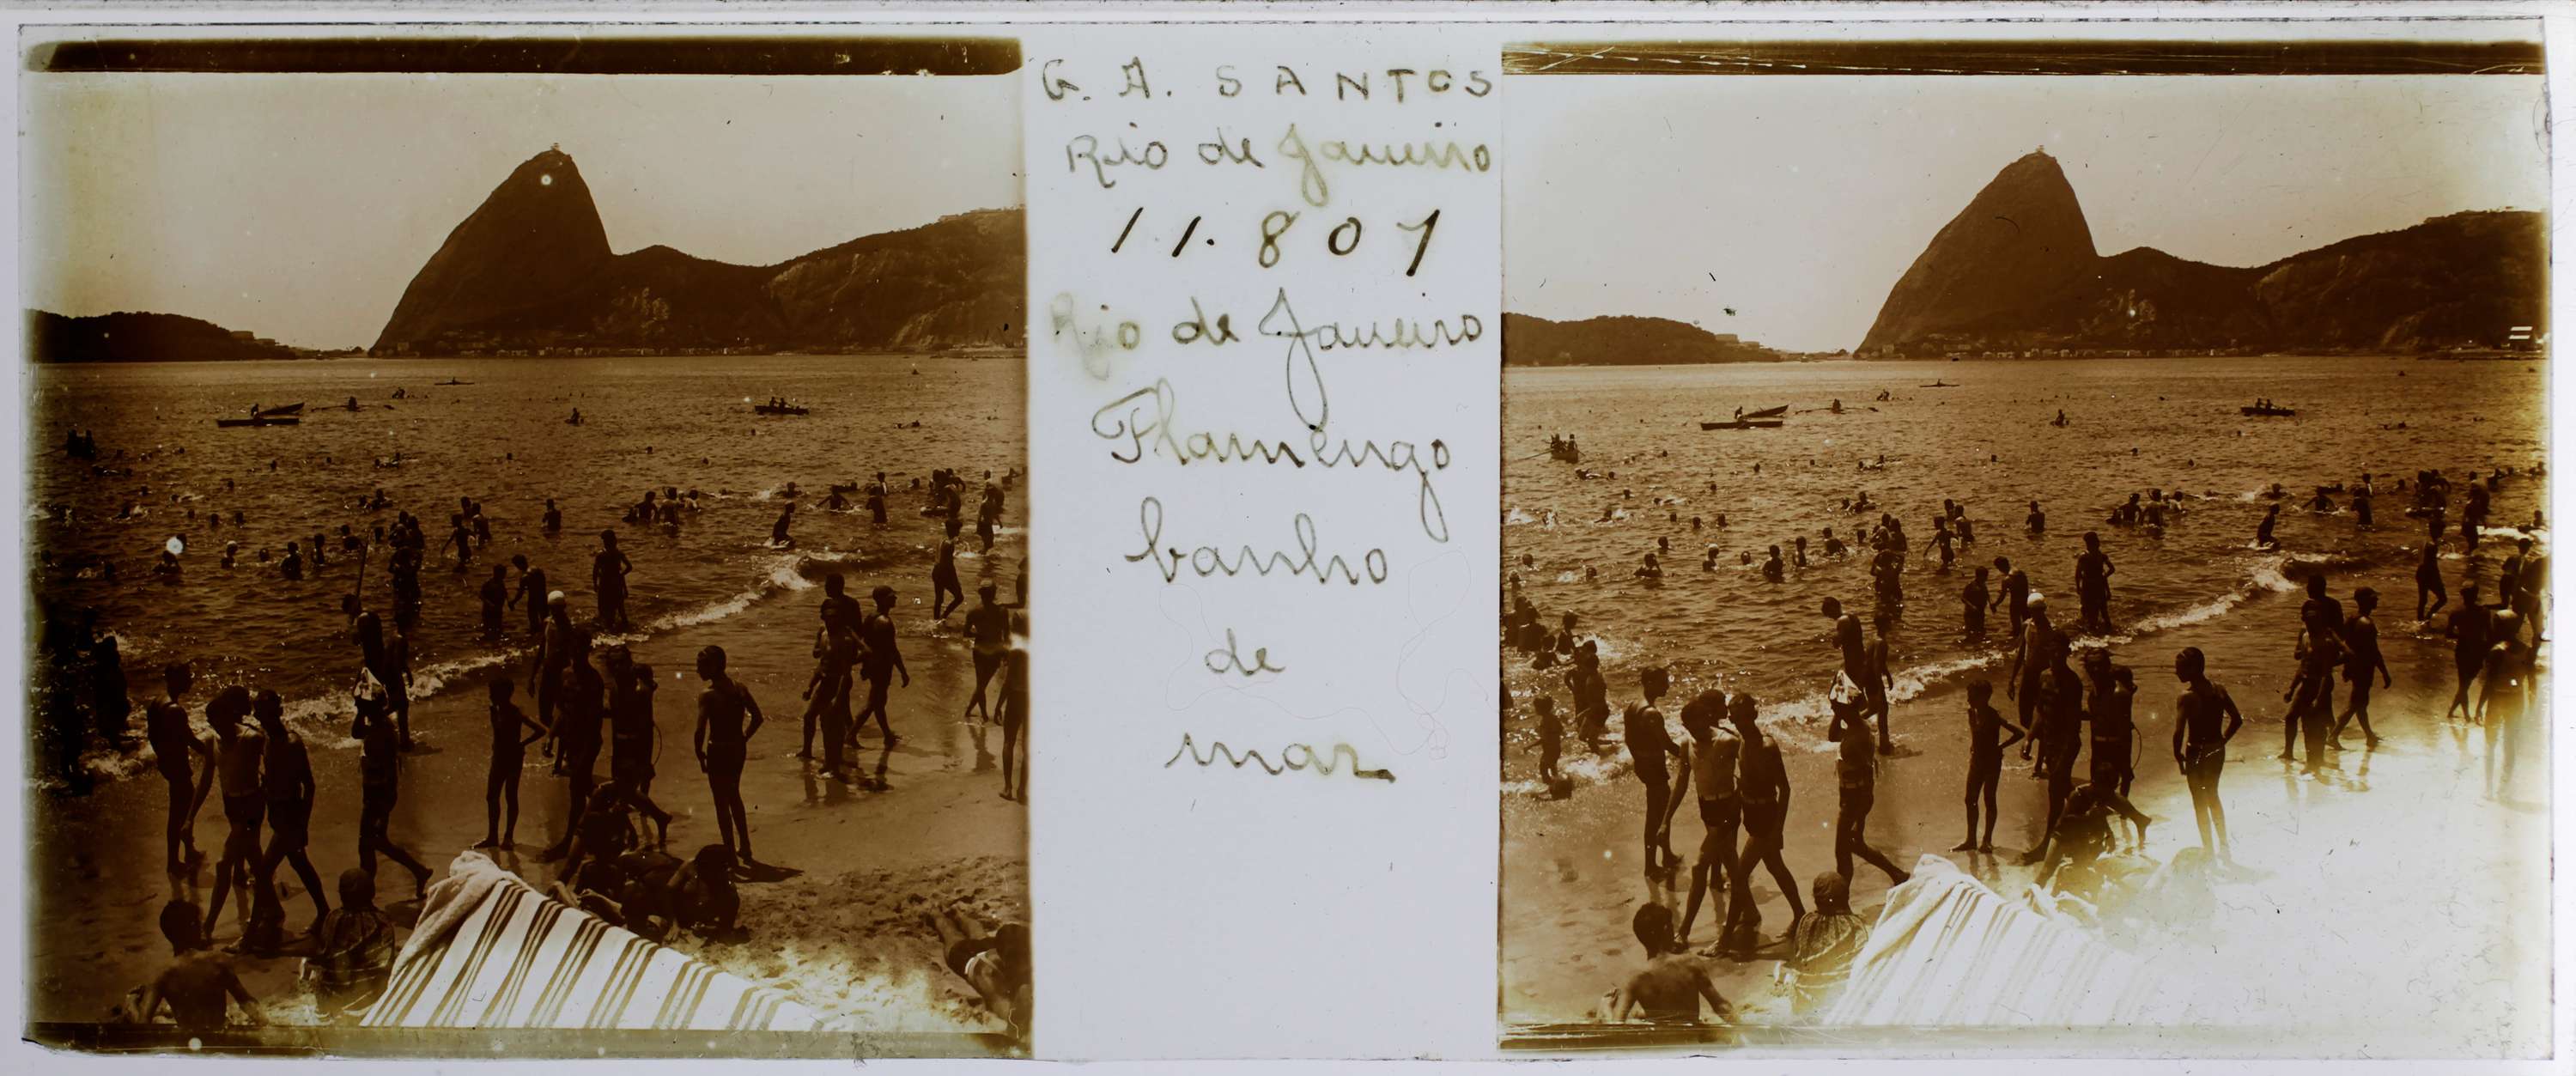 G. A. SANTOS
Rio de Janeiro
11.807
Rio de Janeiro
Flamengo
banho
de
mar